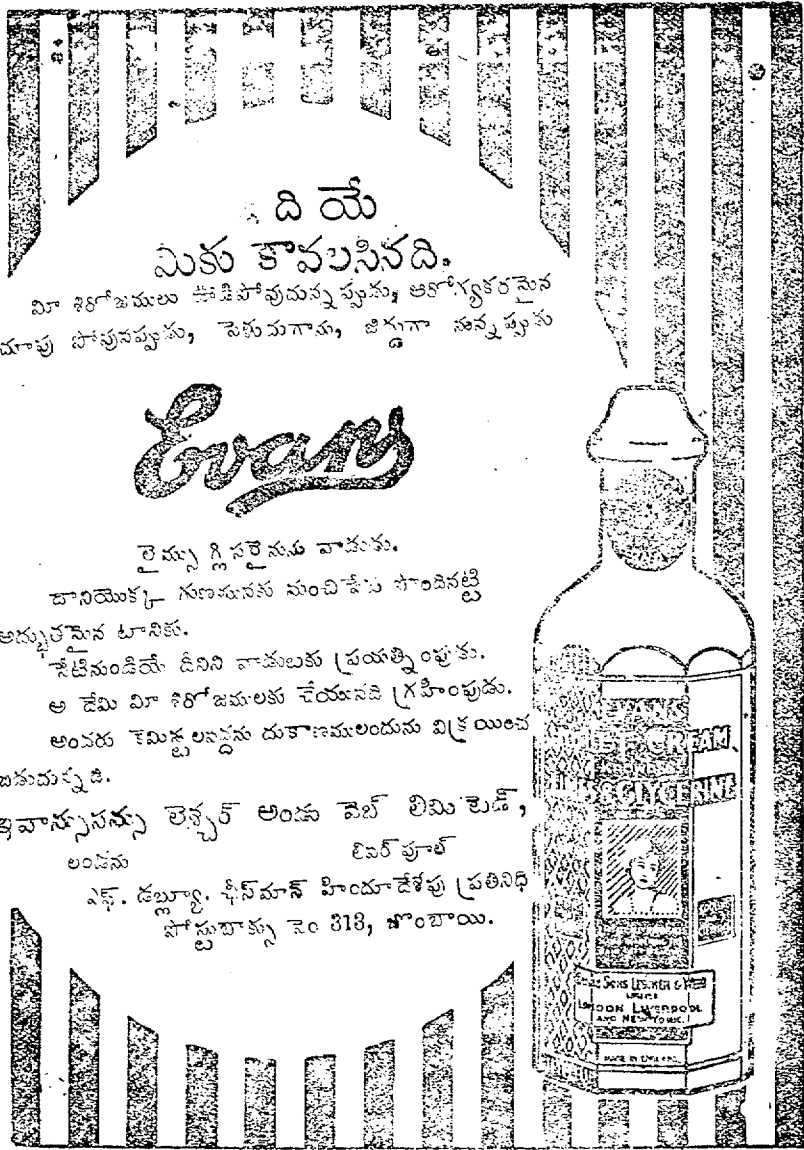 ది యే
మికు కావలసినది.
మీ శిరోజములు ఊడిపోవుచున్నప్పుడు, ఆరోగ్యకరమైన
చూపు పోవునప్పుడు, పెళుచుగాను, జిడ్డుగా నున్నప్పుడు
Evans
లైమ్సు గ్లిసరైనును వాడుడు.
దానియొక్క గుణమునకు మంచిపేరు పొందినట్టి
అద్భుతమైన టానికు.
నేటినుండియే దీనిని వాడుటకు ప్రయత్నింపుడు.
అ దేమి మీ శిరోజములకు చేయునది గ్రహింపుడు.
అందరు కెమిస్టులవద్దను దుకాణములందును విక్రయించ
బడుచున్నది.
ఇవాన్సుసన్సు లెన్చర్ అండు వెబ్ లిమి టెడ్,
లండను లివర్ పూల్
ఎఫ్. డబ్ల్యూ. హీన్‌మాన్ హిందూదేశపు ప్రతినిధి
పోస్టుబాక్సు నెం 313, బొంబాయి.
EVANS
CREAM
GLYCERINE
SONS LESCHER & WEBB
LIMITED
LONDON LIVERPOOL
AND NEW YORK.
MADE IN ENGLAND